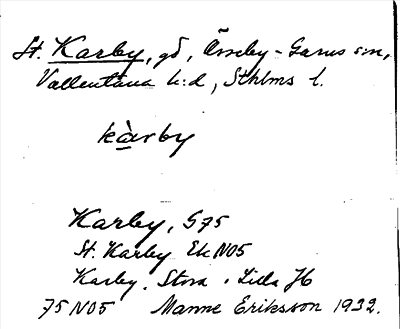 St. Karby, gd, Össeby-Garns sn,
Vallentuna h:d, Sthlms l.
kàrby
Karby, S75
St. Karby Ek N05
Karby. Stora. Lilla JK
75 N05 Manne Eriksson 1932.